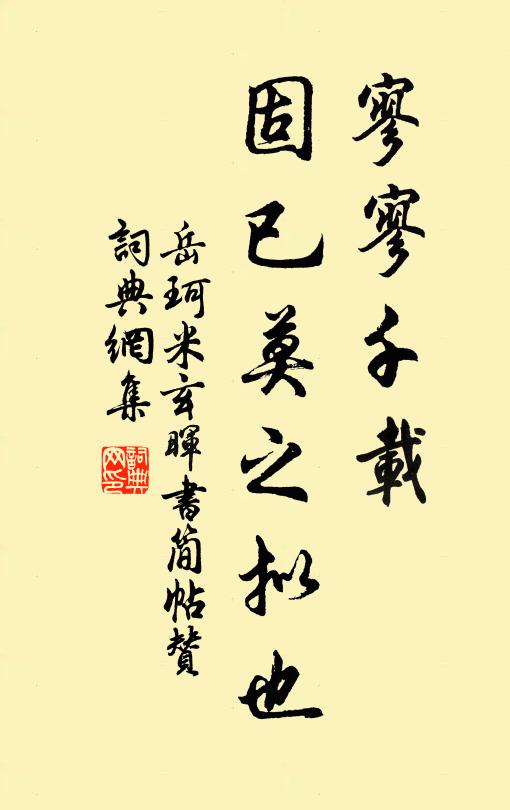 寥寥千載
固已莫之拟也
岳珂米玄暉書简帖贊
詞典網集
詞典
网印